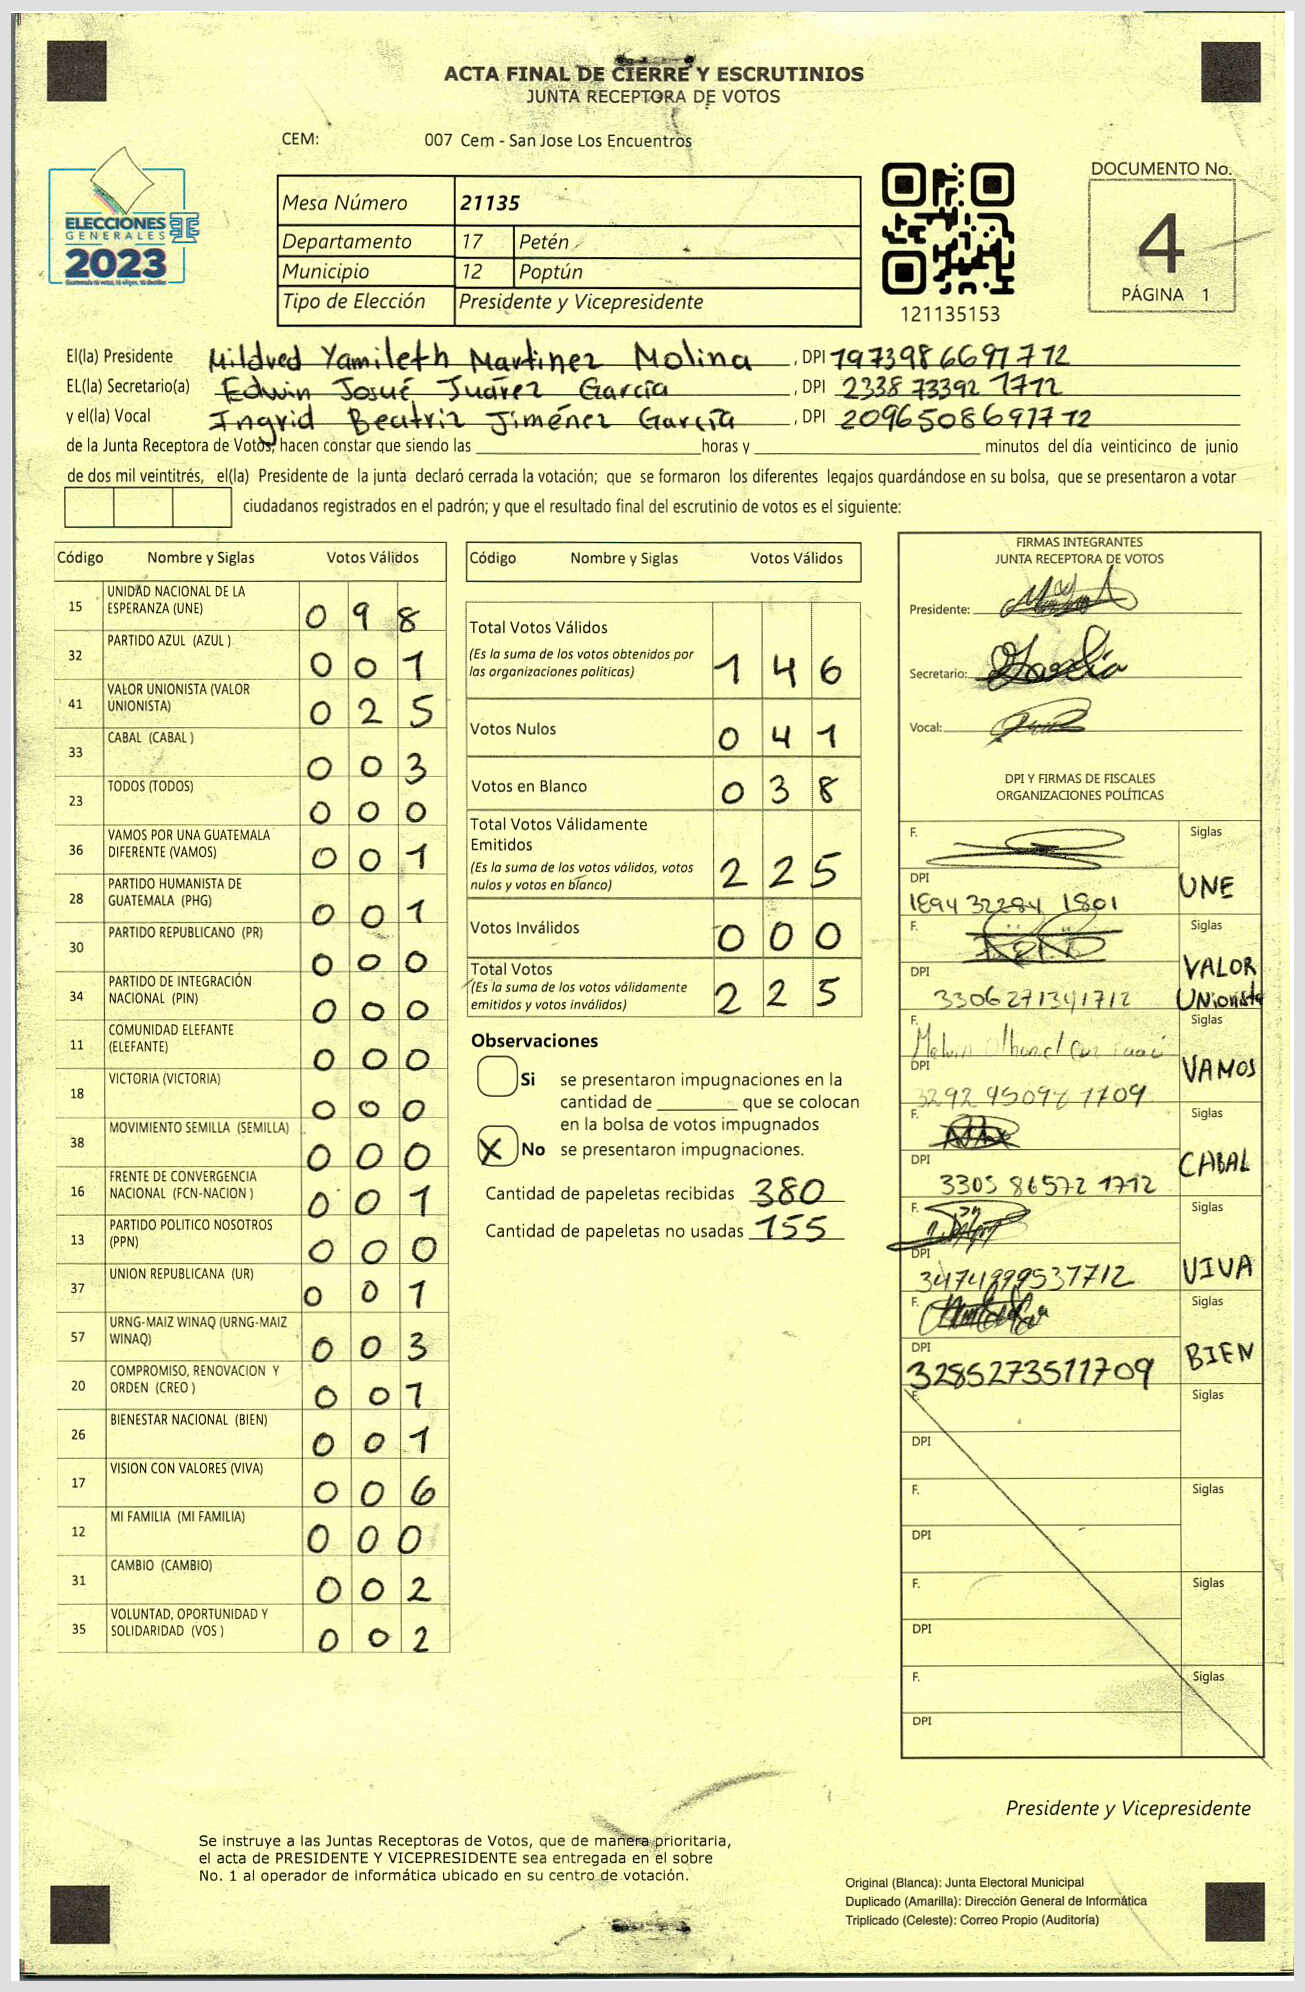 ACTA FINAL DE CIERRE Y ESCRUTINIOS
JUNTA RECEPTORA DE VOTOS
CEM: 007 Cem - San Jose Los Encuentros
ELECCIONES
GENERALES
2023
Mesa Número 21135
Departamento 17 Petén
Municipio 12 Poptún
Tipo de Elección Presidente y Vicepresidente
121135153
DOCUMENTO No.
4
PÁGINA 1
El(la) Presidente Mildred Yamileth Martinez Molina, DPI 1973986691712
EL(la) Secretario(a) Edwin Josué Juárez García, DPI 2338 73392 1712
y el(la) Vocal Ingrid Beatriz Jiménez García, DPI 2096508691712
de la Junta Receptora de Votos, hacen constar que siendo las ____ horas y ____ minutos del día veinticinco de junio
de dos mil veintitrés, el(la) Presidente de la junta declaró cerrada la votación; que se formaron los diferentes legajos guardándose en su bolsa, que se presentaron a votar
ciudadanos registrados en el padrón; y que el resultado final del escrutinio de votos es el siguiente:
Código Nombre y Siglas Votos Válidos
15 UNIDAD NACIONAL DE LA ESPERANZA (UNE) 0 9 8
32 PARTIDO AZUL (AZUL ) 0 0 1
41 VALOR UNIONISTA (VALOR UNIONISTA) 0 2 5
33 CABAL (CABAL ) 0 0 3
23 TODOS (TODOS) 0 0 0
36 VAMOS POR UNA GUATEMALA DIFERENTE (VAMOS) 0 0 1
28 PARTIDO HUMANISTA DE GUATEMALA (PHG) 0 0 1
30 PARTIDO REPUBLICANO (PR) 0 0 0
34 PARTIDO DE INTEGRACIÓN NACIONAL (PIN) 0 0 0
11 COMUNIDAD ELEFANTE (ELEFANTE) 0 0 0
18 VICTORIA (VICTORIA) 0 0 0
38 MOVIMIENTO SEMILLA (SEMILLA) 0 0 0
16 FRENTE DE CONVERGENCIA NACIONAL (FCN-NACION ) 0 0 1
13 PARTIDO POLITICO NOSOTROS (PPN) 0 0 0
37 UNION REPUBLICANA (UR) 0 0 1
57 URNG-MAIZ WINAQ (URNG-MAIZ WINAQ) 0 0 3
20 COMPROMISO, RENOVACION Y ORDEN (CREO ) 0 0 1
26 BIENESTAR NACIONAL (BIEN) 0 0 1
17 VISION CON VALORES (VIVA) 0 0 6
12 MI FAMILIA (MI FAMILIA) 0 0 0
31 CAMBIO (CAMBIO) 0 0 2
35 VOLUNTAD, OPORTUNIDAD Y SOLIDARIDAD (VOS ) 0 0 2
Código Nombre y Siglas Votos Válidos
Total Votos Válidos
(Es la suma de los votos obtenidos por
las organizaciones políticas) 1 4 6
Votos Nulos 0 4 1
Votos en Blanco 0 3 8
Total Votos Válidamente
Emitidos
(Es la suma de los votos válidos, votos
nulos y votos en blanco) 2 2 5
Votos Inválidos 0 0 0
Total Votos
(Es la suma de los votos válidamente
emitidos y votos inválidos) 2 2 5
Observaciones
Si se presentaron impugnaciones en la
cantidad de ____ que se colocan
en la bolsa de votos impugnados
X No se presentaron impugnaciones.
Cantidad de papeletas recibidas 380
Cantidad de papeletas no usadas 155
FIRMAS INTEGRANTES
JUNTA RECEPTORA DE VOTOS
Presidente:
Secretario:
Vocal:
DPI Y FIRMAS DE FISCALES
ORGANIZACIONES POLÍTICAS
F. Siglas
DPI UNE
1894 32284 1801
F. Siglas
DPI VALOR
3306271341712 Unionista
F. Siglas
DPI VAMOS
3292 95098 1709
F. Siglas
DPI CABAL
3305 86572 1712
F. Siglas
DPI VIVA
F. Siglas
DPI BIEN
3285273511709
F. Siglas
DPI
F. Siglas
DPI
F. Siglas
DPI
F. Siglas
DPI
Presidente y Vicepresidente
Se instruye a las Juntas Receptoras de Votos, que de manera prioritaria,
el acta de PRESIDENTE Y VICEPRESIDENTE sea entregada en el sobre
No. 1 al operador de informática ubicado en su centro de votación.
Original (Blanca): Junta Electoral Municipal
Duplicado (Amarilla): Dirección General de Informática
Triplicado (Celeste): Correo Propio (Auditoría)